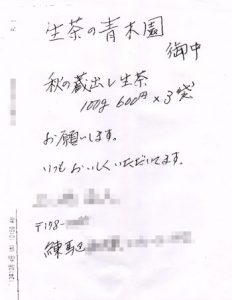 生茶の青木園
御中
秋の蔵出し生茶
100g 600円×3袋
お願いします。
いつもおいしくいただいてます。
〒178-
練馬区